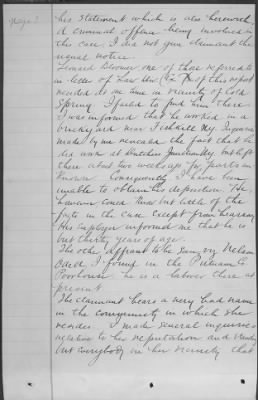 Page 3
her statement which is also herewith
A criminal offence being involved in
this case I did not give claimant the
usual notice.
Leonard Bloomer one of those referred to
in letter of Law Div. of this report
resided at one time in vicinity of Cold
Spring I failed to find him there
I was informed that he worked in a
brickyard near Fishkill NY. Inquiries
made by me revealed the fact that he
did work at Dutchess Junction, but left
there about two weeks ago for parts un
known Consequently I have been
unable to obtain his deposition. He
however could know but little of the
facts in the case except from hearsay
His employer informed me that he is
but thirty years of age.
The other affiant to be seen, Nelson
I found in the Putnam Co
Poorhouse, he is a laborer there at
present
The claimant bears a very bad name
in the community in which she
resides. I made several inquiries
relative to her reputation and
but everybody in her vicinity that